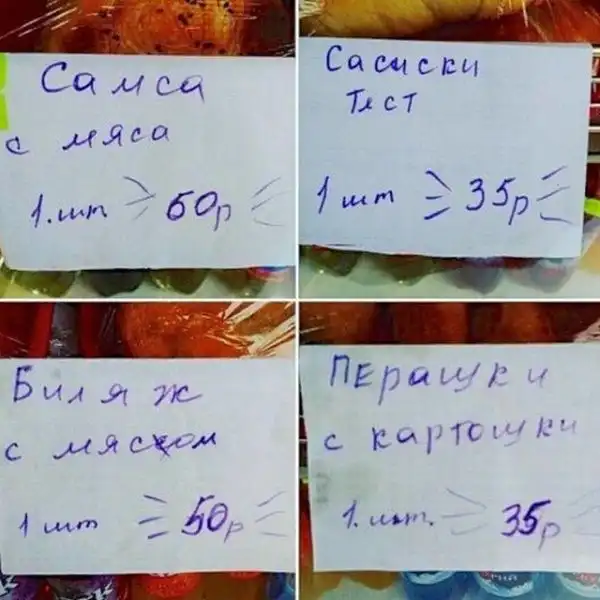 Самса
с мяса
1.шт 60р
Сасиски
Тест
1 шт 35р
Биляж
с мясом
1 шт 50р
ПЕращки
с картощки
1.шт. 35р